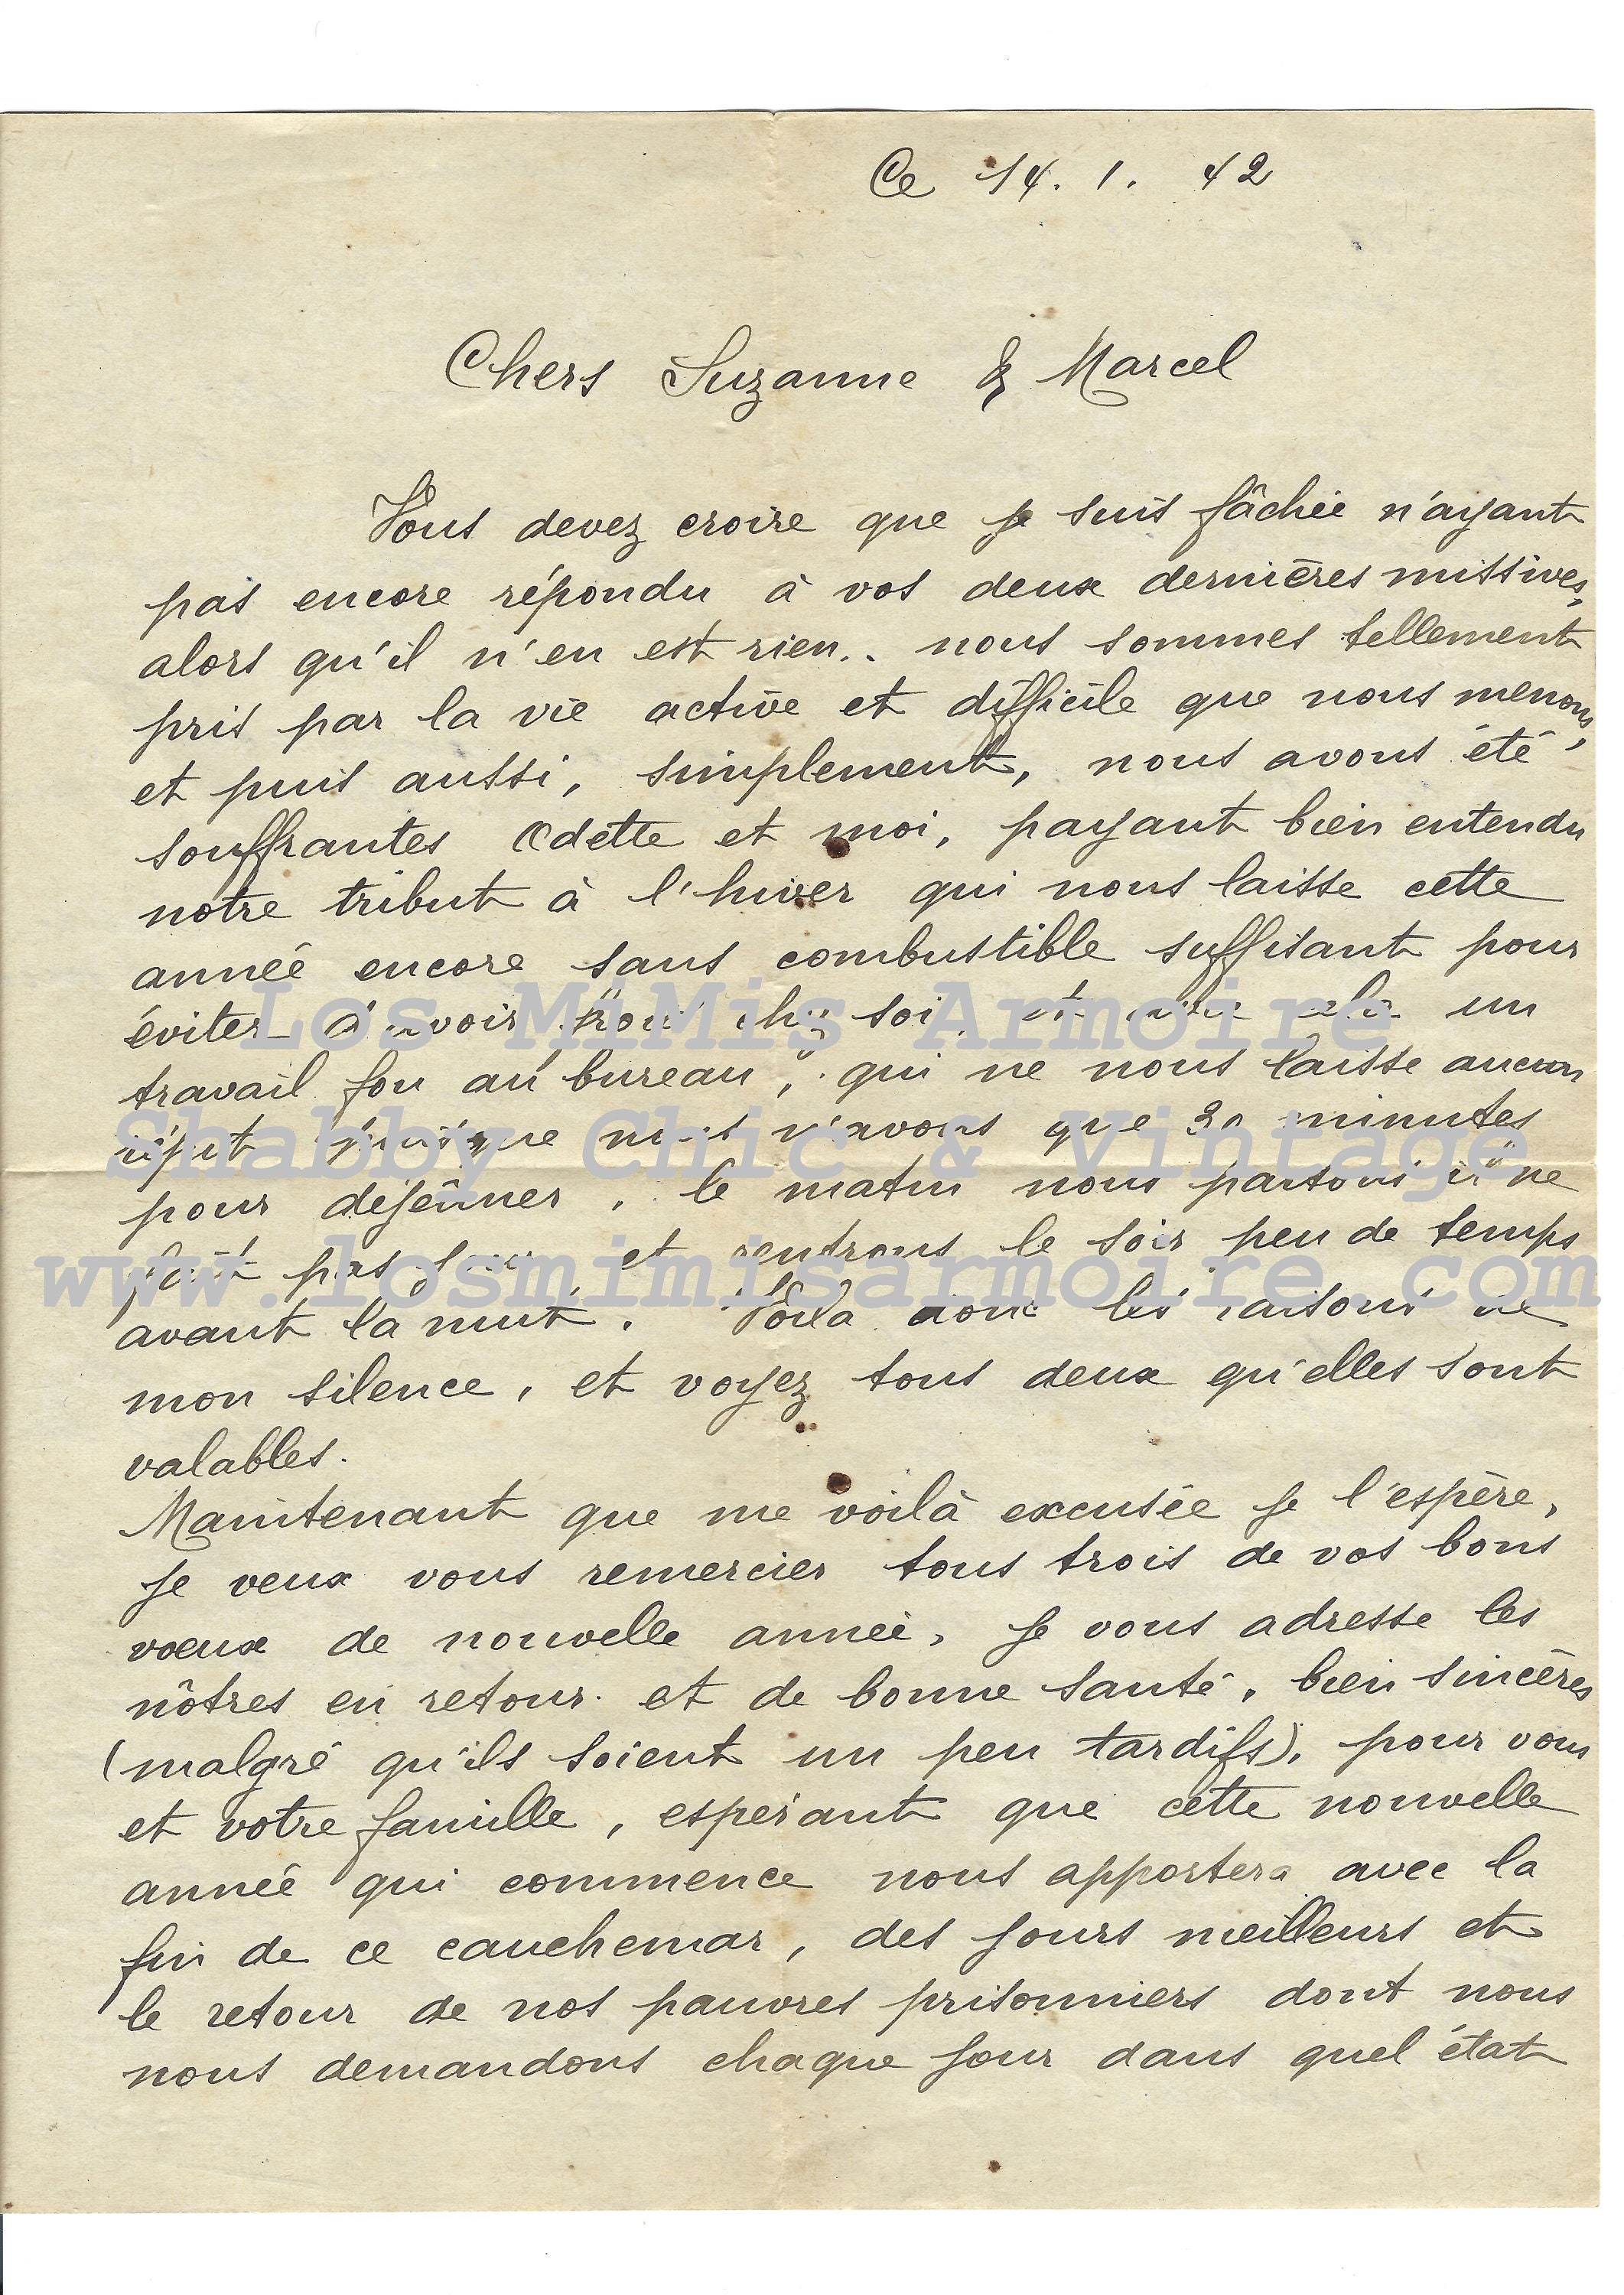 Ce 14. 1. 42
Chers Suzanne & Marcel
Vous devez croire que je suis fâchée n'ayant
pas encore répondu à vos deux dernières missives,
alors qu'il n'en est rien.. nous sommes tellement
pris par la vie active et difficile que nous menons,
et puis aussi, simplement, nous avons été
souffrantes Odette et moi, payant bien entendu
notre tribut à l'hiver qui nous laisse cette
année encore sans combustible suffisant pour
éviter d'avoir froid chez soi, et cela un
Los MiMis Armoire
travail fou au bureau, qui ne nous laisse aucun
répit puisque nous n'avons que 30 minutes
Shabby Chic & Vintage
pour déjeûner, le matin nous partons il ne
fait pas jour, et rentrons le soir peu de temps
www.losmimisarmoire.com
avant la nuit. Voilà donc les raisons de
mon silence, et voyez tous deux qu'elles sont
valables.
Maintenant que me voilà excusée je l'espère,
je veux vous remercier tous trois de vos bons
voeux de nouvelle année, je vous adresse les
nôtres en retour et de bonne santé, bien sincères
(malgré qu'ils soient un peu tardifs), pour vous
et votre famille, espérant que cette nouvelle
année qui commence nous apportera avec la
fin de ce cauchemar, des jours meilleurs et
le retour de nos pauvres prisonniers dont nous
nous demandons chaque jour dans quel état